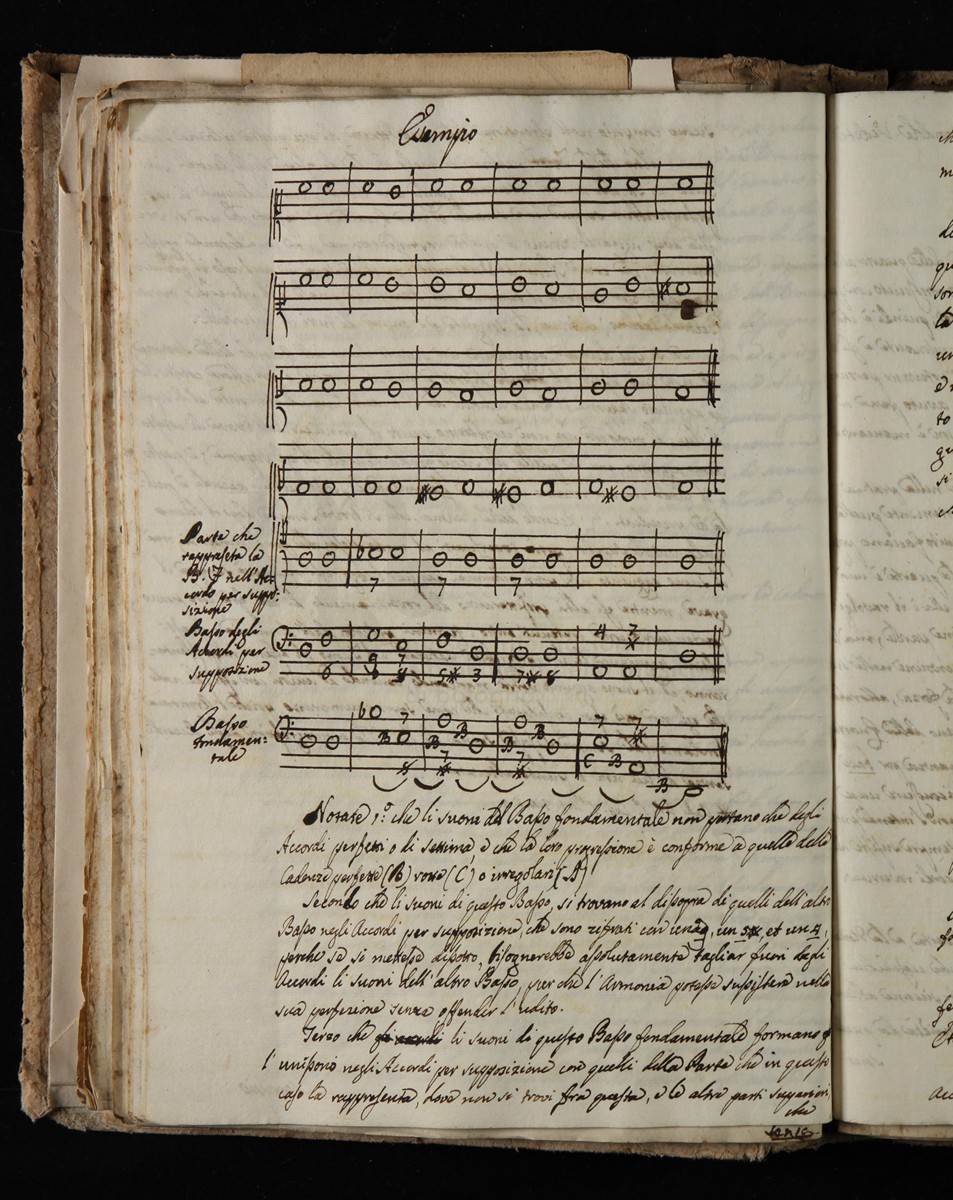 Esempio
Parte che
rappreseta la
B. F nell'Ac-
cordo per suppo-
sizione
7 7 7
Basso degli
Accordi per
supposizione
6 9 7 5 3 7 8 4 7
Basso
fondamen:
tale
b 7 B B B 7 B B 7 7 C B 7 B
Notate 1.º che li suoni del Basso fondamentale non portano che degli
Accordi perfetti o di settima, e che la loro progressione è conforme a quella delle
Cadenze perfette (B) rotte (C) o irregolari (A)
Secondo che li suoni di questo Basso, si trovano al disopra di quelli dell'altro
Basso negli Accordi per supposizione, che sono cifrati con un 9, un 5, et un 4,
perche se si mettesse disotto, bisognerebbe assolutamente tagliar fuori dagli
Accordi li suoni dell'altro Basso, per che l'Armonia potesse sussistere nella
sua perfezione senza offender l'udito.
Terzo che li suoni di questo Basso fondamentale formano
l'unissono negli Accordi per supposizione con quelli della Parte che in questo
caso la rappresenta, dove non si trovi fra questa, e le altre parti superiori,
che